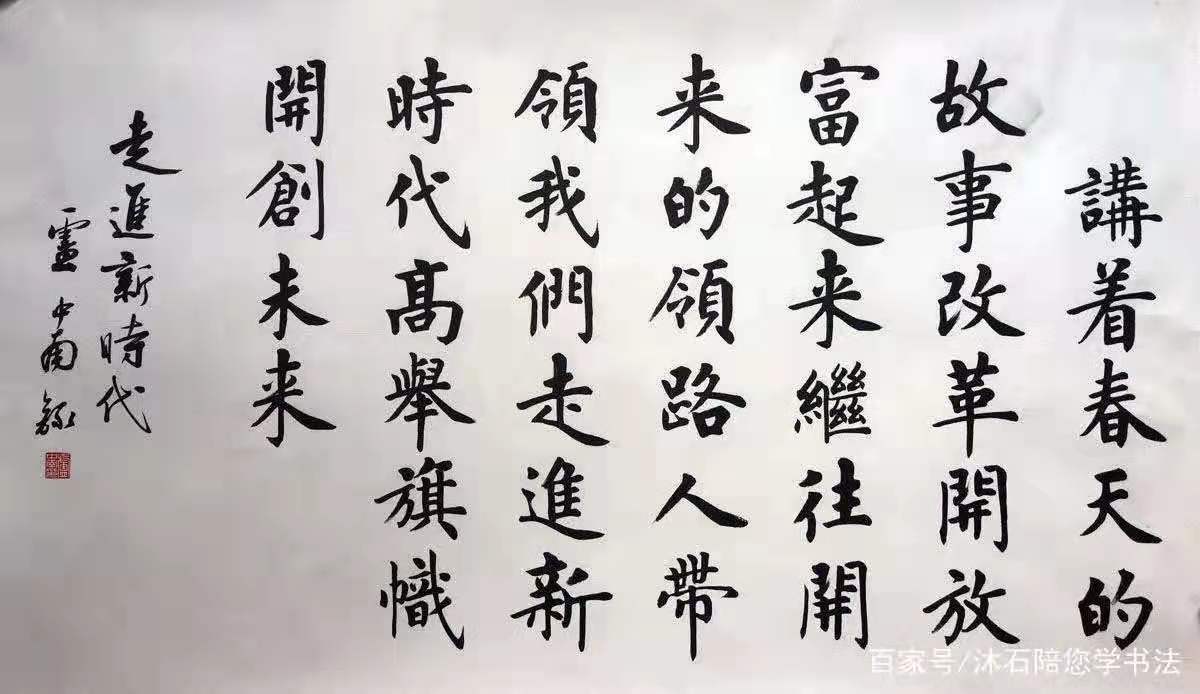 講着春天的
故事改革開放
富起来繼往開
来的領路人帶
領我們走進新
時代髙舉旗幟
開創未来
走進新時代
盧中南錄
百家号/沐石陪您学书法